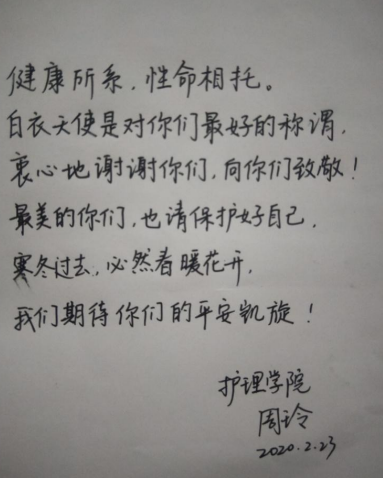 健康所系，性命相托。
白衣天使是对你们最好的称谓，
衷心地谢谢你们，向你们致敬！
最美的你们，也请保护好自己，
寒冬过去，必然春暖花开，
我们期待你们的平安凯旋！
护理学院
周玲
2020.2.23